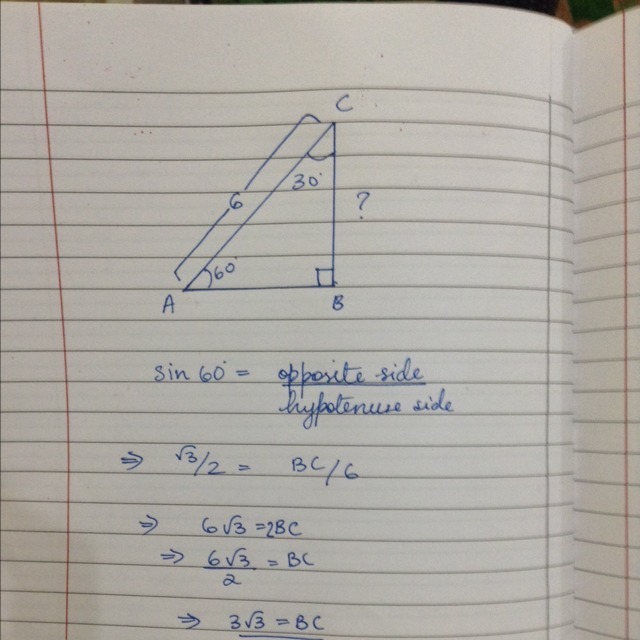 C
30°
6
?
60°
A
B
sin 60° = opposite side
hypotenuse side
⇒ √3/2 = BC/6
⇒ 6√3 = 2BC
⇒ 6√3 = BC
2
⇒ 3√3 = BC